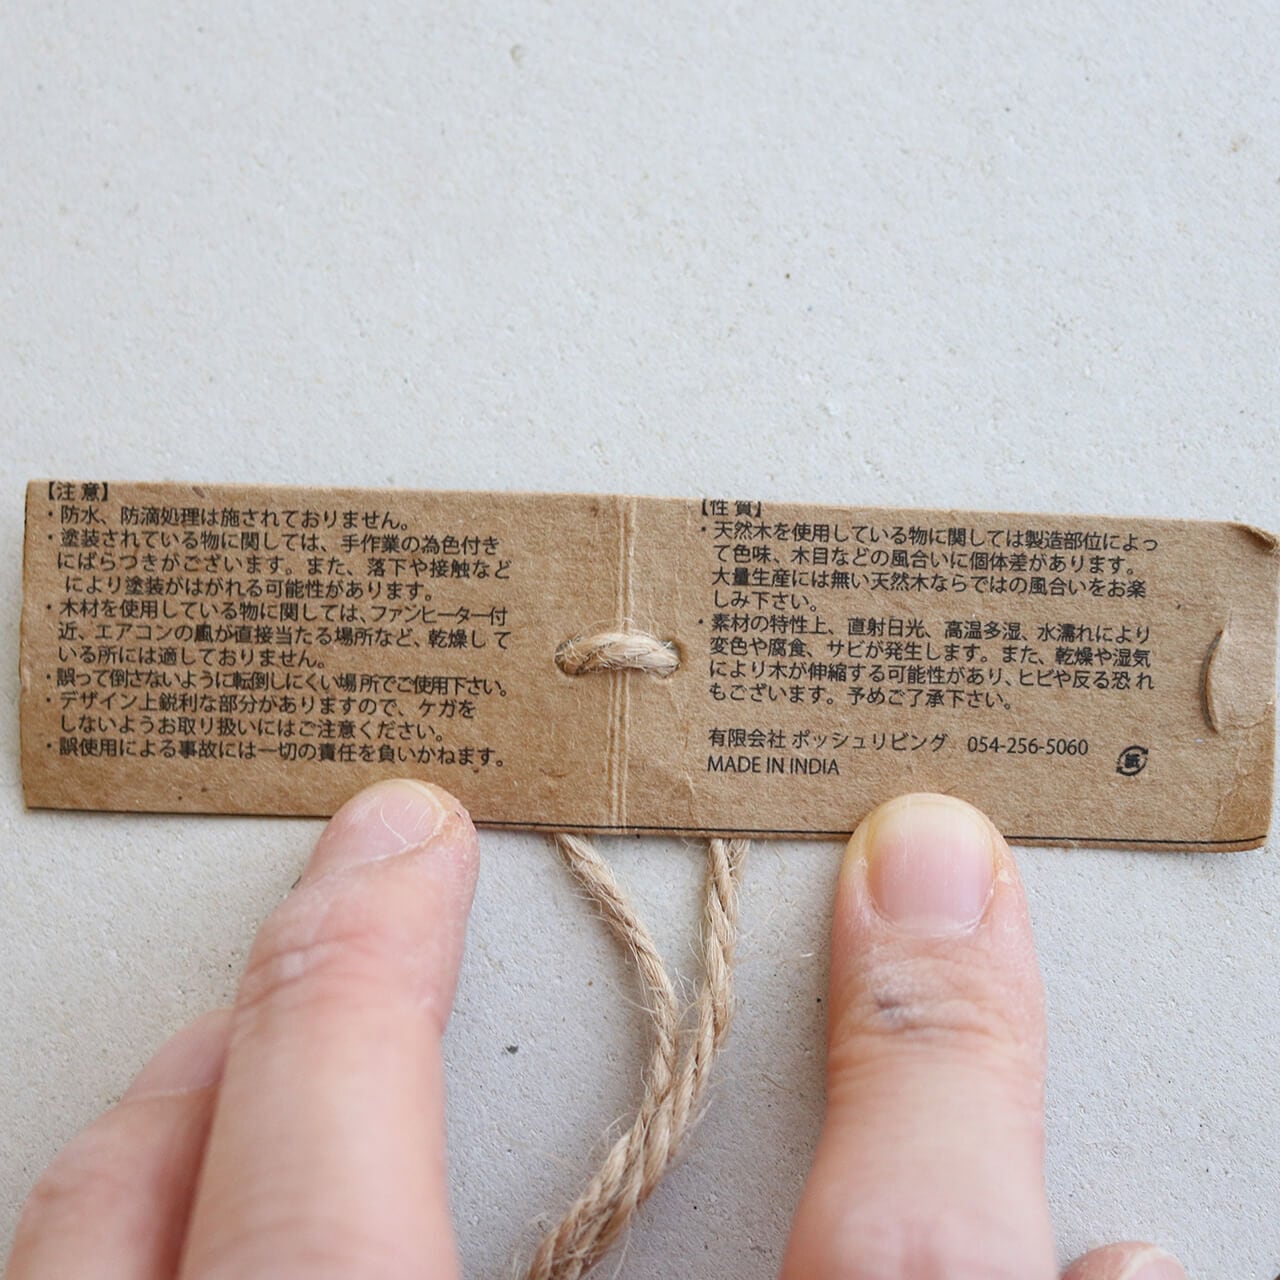 【注 意】
・防水、防滴処理は施されておりません。
・塗装されている物に関しては、手作業の為色付き
にばらつきがございます。また、落下や接触など
により塗装がはがれる可能性があります。
・木材を使用している物に関しては、ファンヒーター付
近、エアコンの風が直接当たる場所など、乾燥し て
いる所には適しておりません。
・誤って倒さないように転倒しにくい場所でご使用下さい。
・デザイン上鋭利な部分がありますので、ケガを
しないようお取り扱いにはご注意ください。
・誤使用による事故には一切の責任を負いかねます。
【性 質】
・天然木を使用している物に関しては製造部位によっ
て色味、木目などの風合いに個体差があります。
大量生産には無い天然木ならではの風合いをお楽
しみ下さい。
・素材の特性上、直射日光、高温多湿、水濡れにより
変色や腐食、サビが発生します。また、乾燥や湿気
により木が伸縮する可能性があり、ヒビや反る恐 れ
もございます。予めご了承下さい。
有限会社 ポッシュリビング 054-256-5060
MADE IN INDIA
紙